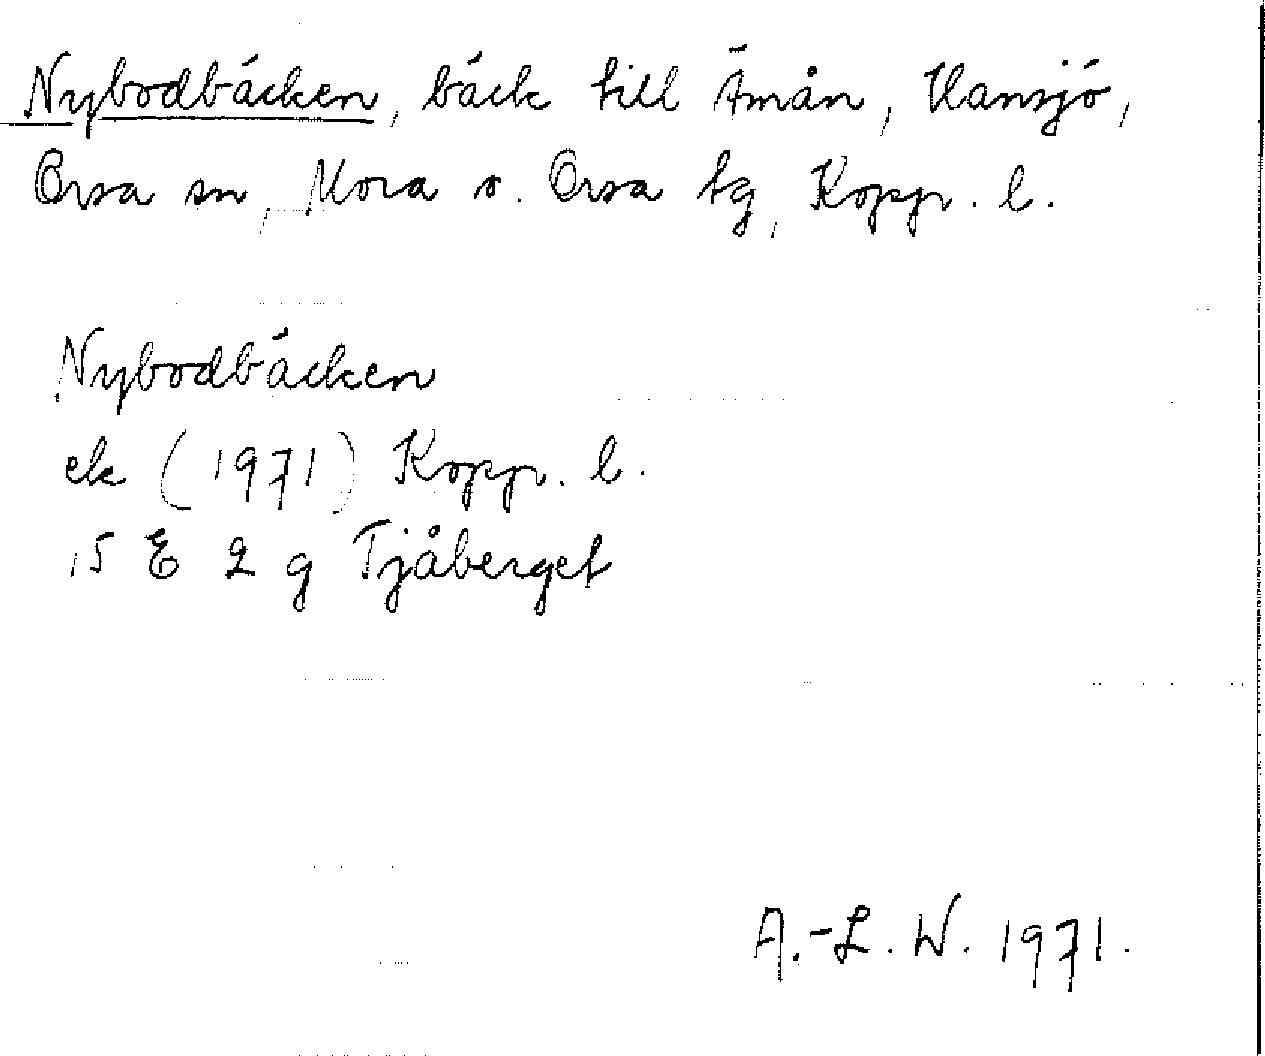 Nybodbäcken, bäck till Ämån, Hansjö,
Orsa sn, Mora o. Orsa tg, Kopp. l.
Nybodbäcken
ek (1971) Kopp. l.
15 E 2 g Tjåberget
A.-L. W. 1971.